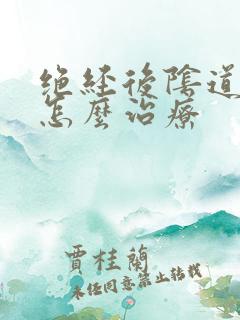 絕經後陰道
怎麼治療
賈桂蘭
未經同意禁止轉載